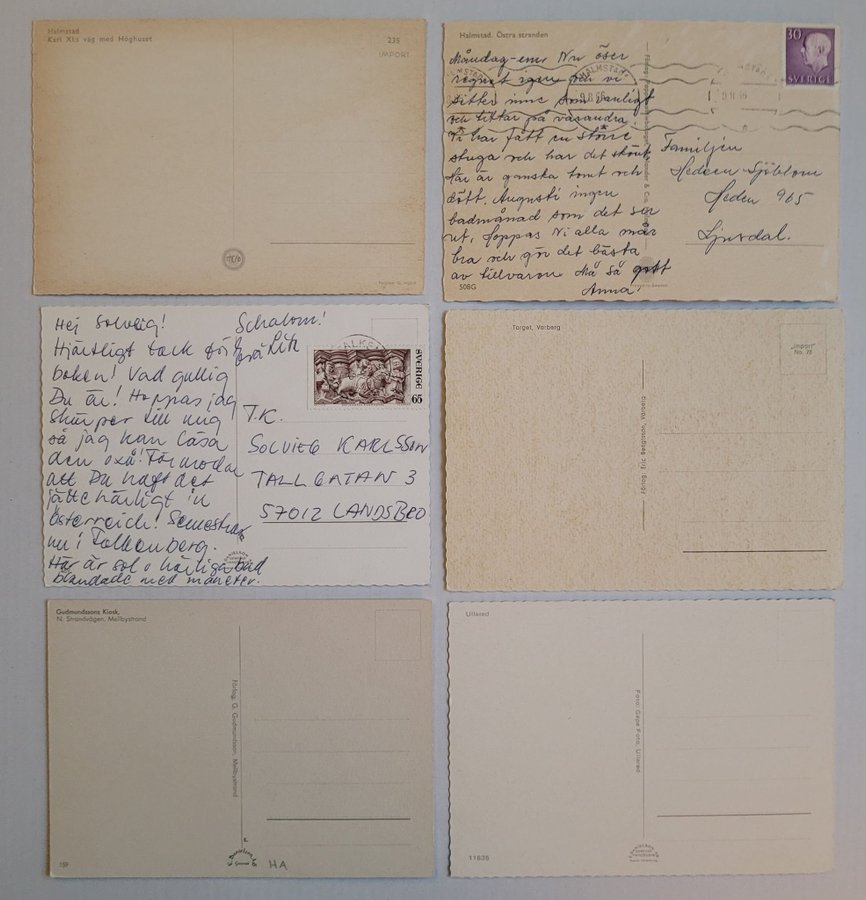 Halmstad
Karl XI:s väg med Höghuset
235
IMPORT
Halmstad. Östra stranden
Måndag-em. Nu öser
regnet igen och vi
sitter inne som vanligt
och tittar på varandra.
Vi har fått en större
stuga och har det skönt.
Här är ganska tomt och
dött. Augusti ingen
badmånad som det ser
ut. Hoppas Ni alla mår
bra och gör det bästa
av tillvaron. Må så gott
Anna!
508G
30
SVERIGE
HALMSTAD
Familjen
Hedeen-Sjöblom
Heden 965
Ljusdal.
Hej Solveig!
Hjärtligt tack för
boken! Vad gullig
Du är! Hoppas jag
skärper till mig
så jag kan läsa
den oxå! Förmodar
att Du haft det
jättehärligt in
Österreich! Semestrar
nu i Falkenberg.
Här är sol o härliga bad
blandade med maneter.
Schalom!
SVERIGE 65
T.K.
SOLVIEG KARLSSON
TALLGATAN 3
57012 LANDSBRO
Torget, Varberg
"Import"
No. 78
Förlag: Eric Bengtsson, Varberg
Gudmundssons Kiosk,
N. Strandvägen, Mellbystrand
Förlag: G. Gudmundsson, Mellbystrand
159
HA
Ullared
Foto: Gepe Foto, Ullared
11836